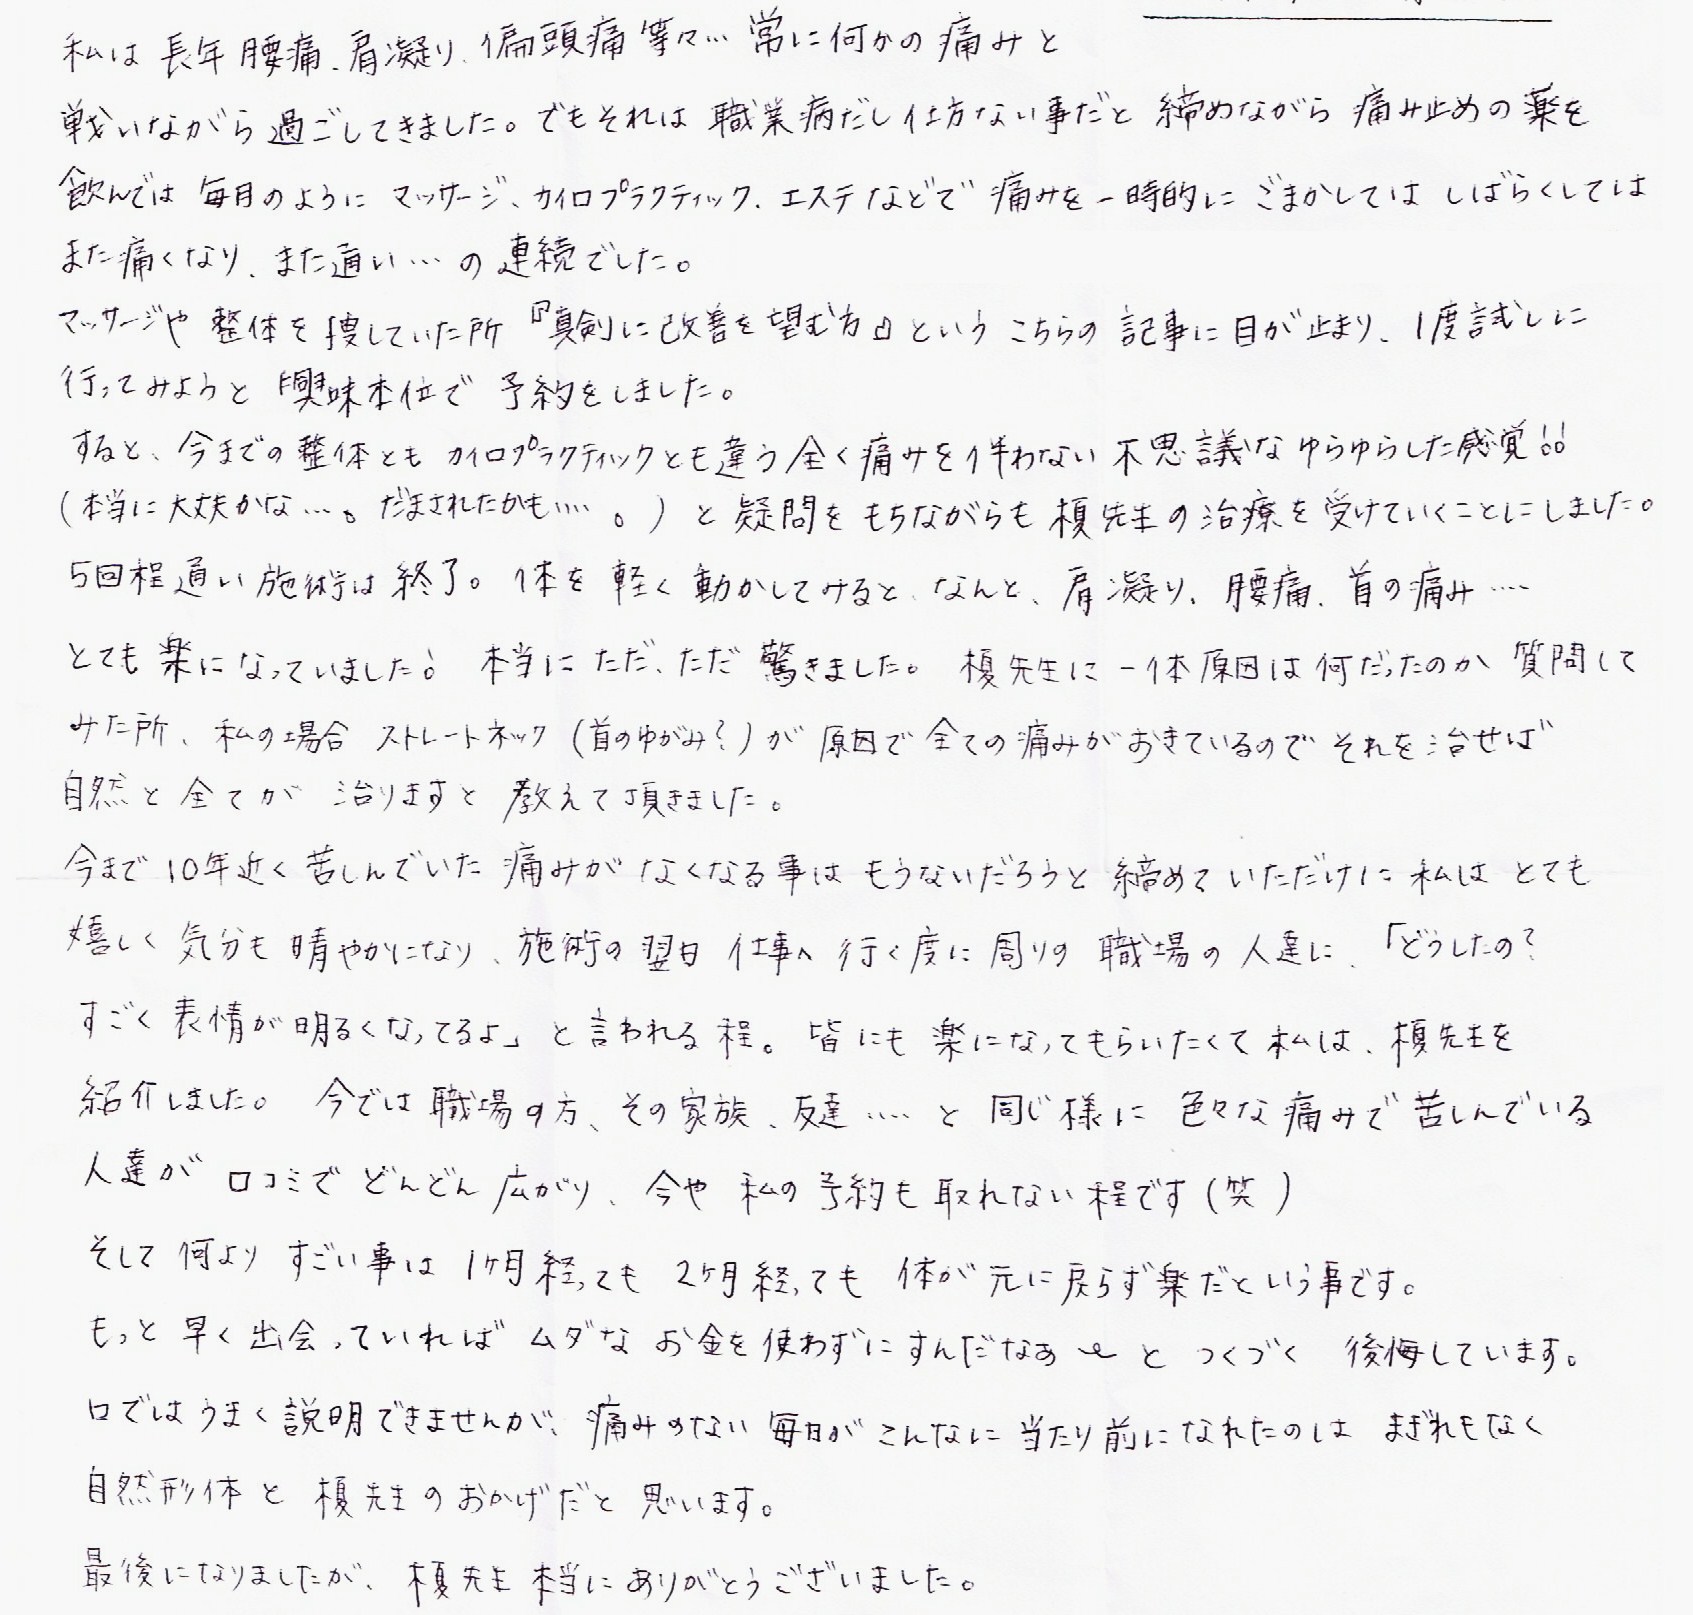 私は長年腰痛、肩凝り、偏頭痛等々…常に何かの痛みと
戦いながら過ごしてきました。でもそれは職業病だし仕方ない事だと締めながら痛み止めの薬を
飲んでは毎月のようにマッサージ、カイロプラクティック、エステなどで痛みを一時的にごまかしてはしばらくしては
また痛くなり、また通い…の連続でした。
マッサージや整体を捜していた所『真剣に改善を望む方』というこちらの記事に目が止まり、1度試しに
行ってみようと興味本位で予約をしました。
すると、今までの整体ともカイロプラクティックとも違う全く痛みを伴わない不思議なゆらゆらした感覚!!
(本当に大丈夫かな…。だまされたかも….。)と疑問をもちながらも榎先生の治療を受けていくことにしました。
5回程通い施術は終了。体を軽く動かしてみると、なんと、肩凝り、腰痛、首の痛み….
とても楽になっていました!本当にただ、ただ驚きました。榎先生に一体原因は何だったのか質問して
みた所、私の場合ストレートネック(首のゆがみ?)が原因で全ての痛みがおきているのでそれを治せば
自然と全てが治りますと教えて頂きました。
今まで10年近く苦しんでいた痛みがなくなる事はもうないだろうと締めていただけに私はとても
嬉しく気分も晴やかになり、施術の翌日仕事へ行く度に周りの職場の人達に、「どうしたの?
すごく表情が明るくなってるよ」と言われる程。皆にも楽になってもらいたくて私は、榎先生を
紹介しました。今では職場の方、その家族、友達…..と同じ様に色々な痛みで苦しんでいる
人達が口コミでどんどん広がり、今や私の予約も取れない程です(笑)
そして何よりすごい事は1ヶ月経っても2ヶ月経っても体が元に戻らず楽だという事です。
もっと早く出会っていればムダなお金を使わずにすんだなあ〜とつくづく後悔しています。
口ではうまく説明できませんが、痛みのない毎日がこんなに当たり前になれたのはまぎれもなく
自然形体と榎先生のおかげだと思います。
最後になりましたが、榎先生本当にありがとうございました。